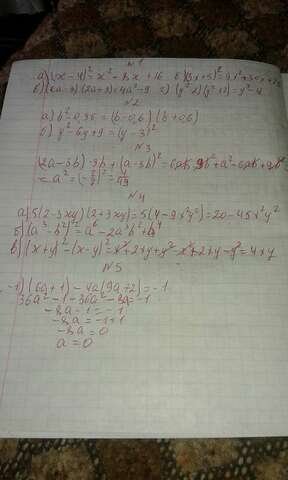 №1
а) (x-4)²=x²+8x+16 б) (3x+5)²=9x²+30x+25
в) (2a-3)(2a+3)=4a²-9 г) (y²-2)(y²+2)=y⁴-4
№2
а) b²-0,36=(b-0,6)(b+0,6)
б) y²-6y+9=(y-3)²
№3
=a²=(-
№4
а) 5(2-3xy)(2+3xy)=5(4-9x²y²)=20-45x²y²
б) (a³-b²)²=a⁶-2a³b²+b⁴
в) (x+y)²-(x-y)²=x²+2xy+y²-x²+2xy-y²=4xy
№5
-1)(6a+1)-4a(9a+2)=-1
36a²-1-36a²-8a=-1
-8a-1=-1
-8a=-1+1
-8a=0
a=0